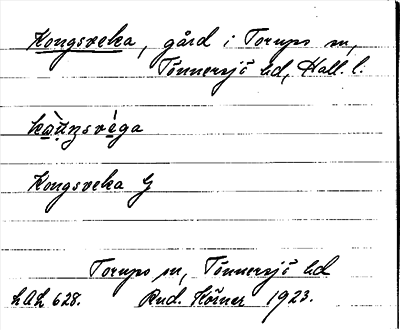 Kongsveka, gård i Torups sn,
Tönnersjö hd, Hall. l.
Kongsveka G
Torups sn, Tönnersjö hd
LAL 628. Rud. Hörner 1923.